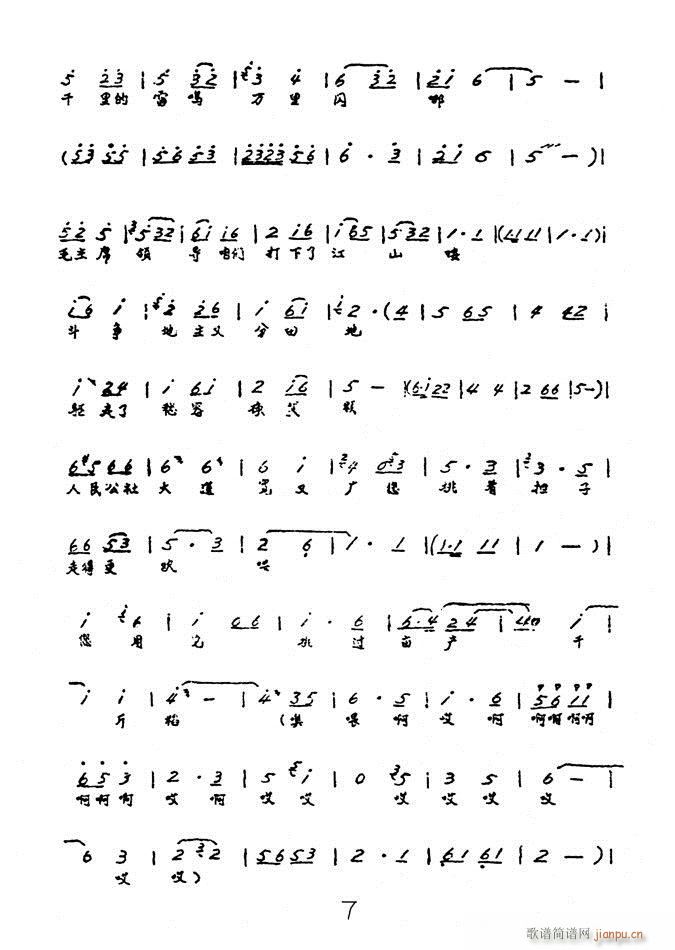 5 2 3 | 5 3 2 | 3 4 | 6 3 2 | 2 i 6 | 5 — |
千 里的 雷 鸣 万 里 闪 哪
(5 3 5 5 | 5 6 5 3 | 2 3 2 3 5 6 | 6 · 3 | 2 i 6 | 5 — ) |
5 2 5 | 5 3 2 | 6 i i 6 | 2 i 6 | i 6 5 | 5 3 2 | 1 · 1 | (1 1 1 1 | 1 · 1) |
毛主 席 领 导 咱们 打 下了 江 山
i 6 i | 2 2 6 | i 6 i | 2 · (4 | 5 6 5 | 4 4 2 |
斗 争 地 主义 分 田 地
i 2 4 | i 6 i | 2 i 6 | 5 — | (6 · i 2 2 | 4 4 | 2 6 6 | 5 —) |
6 5 6 6 | 6 6 | 6 i | 4 0 3 | 5 · 3 | 3 · 5 |
人民公社 大 道 宽 又 广 您 挑 着 担 子
6 6 5 3 | 5 · 3 | 2 6 | 1 · 1 | (1 · 1 1 1 | 1 — ) |
走得更 欢
i 6 | i 0 6 | i · 6 | 6 · 4 2 4 | 4 i |
您 用 它 挑 过 亩 产 千
i i | 4 — | 4 3 5 | 6 · 5 | i · 6 | 5 6 i i |
斤 粮 喂 啊 哎 啊 啊啊啊啊
6 5 3 | 2 · 3 | 5 i | 0 5 | 3 5 | 6 — |
啊啊啊 哎 啊 哎 哎 哎 哎 哎 哎
6 3 | 2 2 | 5 6 5 3 | 2 · 1 | 6 1 6 1 | 2 — ) |
哎 哎)
7
歌谱简谱网
jianpu.cn